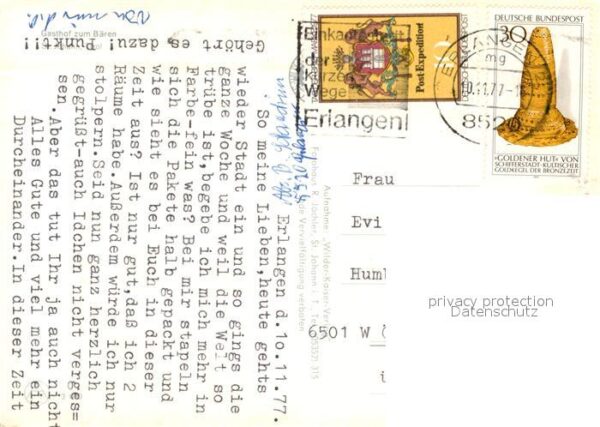 Erlangen d. 1o.11.77.
So meine Lieben,heute gehts
wieder Stadt ein und so gings die
ganze Woche und weil die Welt so
trübe ist,begebe ich mich mehr in
Farbe-fein was? Bei mir stapeln
sich die Pakete halb gepackt und
wie sieht es bei Euch in dieser
Zeit aus? Ist nur gut,daß ich 2
Räume habe.Außerdem würde ich nur
stolpern.Seid nun ganz herzlich
gegrüßt-auch Idchen nicht verges=
sen.
Aber das tut Ihr ja auch nicht
Alles Gute und viel mehr ein
Durcheinander.In dieser Zeit
Gehört es dazu! Punkt!!
Gasthof zum Bären
Aufnahme: „Wilder-Kaiser-Ver
R. Jöchler, St. Johann i. T.
Vervielfältigung verboten
Einkaufsstadt
der
kurzen
Wege
Erlangen
Post-Expedition
ERLANGEN
mg
10.11.77
8520
DEUTSCHE BUNDESPOST
30
»GOLDENER HUT« VON
SCHIFFERSTADT-KULTISCHER
GOLDKEGEL DER BRONZEZEIT
Frau
Evi
Humb
6501 W
privacy protection
Datenschutz